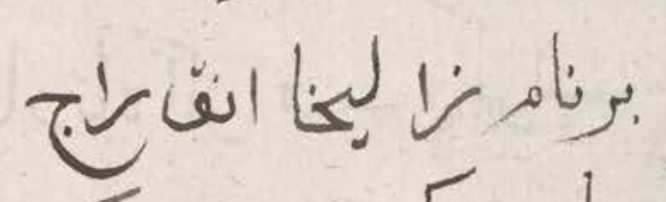 برنام زا ليخا انق راج